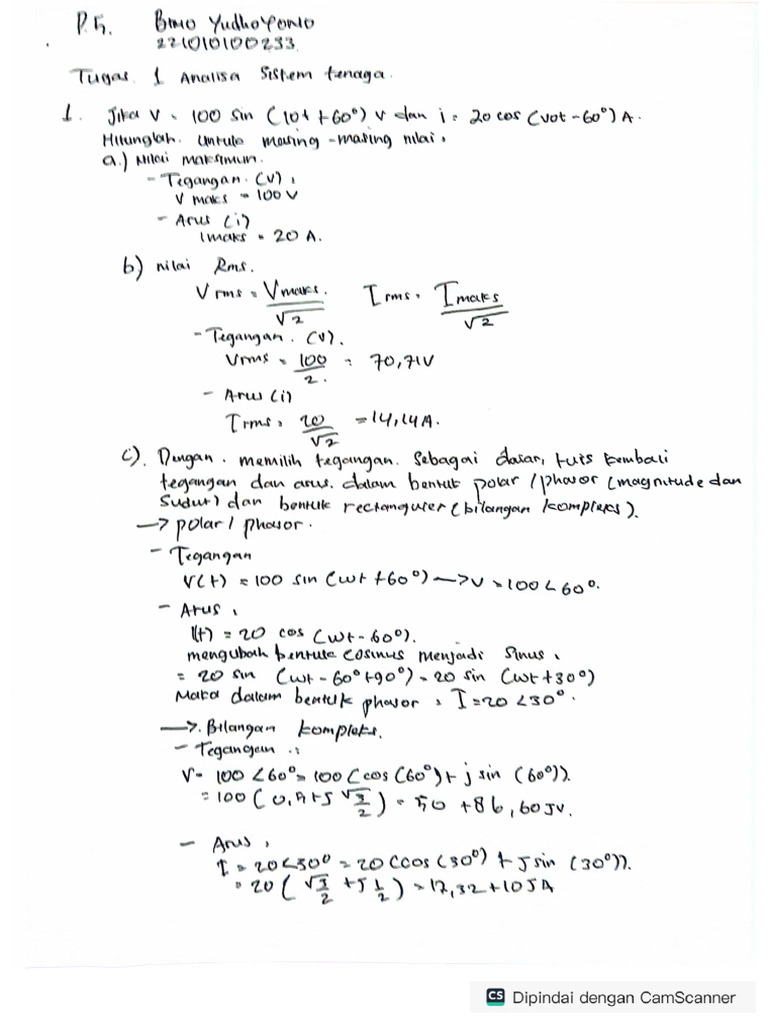 P.5. Bimo Yudhoyono
221010100233
Tugas 1 Analisa Sistem tenaga.
1. Jika V = 100 sin (10t +60°) V dan i = 20 cos (wt -60°) A.
Hitunglah. Untuk masing-masing nilai.
a.) Nilai maksimun.
- Tegangan. (V),
V maks = 100 V
- Arus (i)
I maks = 20 A.
b) nilai Rms.
V rms = Vmaks. / √2 I rms = I maks / √2
- Tegangan. (V).
Vrms = 100 / 2. = 70,71V
- Arus (i)
Irms = 20 / √2 = 14,14 A.
c). Dengan. memilih tegangan. Sebagai dasar, tuis kembali
tegangan dan arus. dalam bentuk polar / phasor (magnitude dan
sudut) dan bentuk rectanguler (bilangan kompleks).
→ polar / phasor.
- Tegangan
V(t) = 100 sin (wt +60°) → V = 100 < 60°.
- Arus,
I(t) = 20 cos (wt -60°).
mengubah bentuk cosinus menjadi sinus,
= 20 sin (wt -60° +90°) = 20 sin (wt +30°)
Maka dalam bentuk phasor, I = 20 < 30°.
→ Bilangan kompleks.
- Tegangan :
V = 100 < 60° = 100 (cos (60°) + j sin (60°)).
= 100 (0,5 + j √3/2) = 50 + 86,60 j V.
- Arus,
I = 20 < 30° = 20 (cos (30°) + j sin (30°)).
= 20 (√3/2 + j 1/2) = 17,32 + 10 j A
CS Dipindai dengan CamScanner